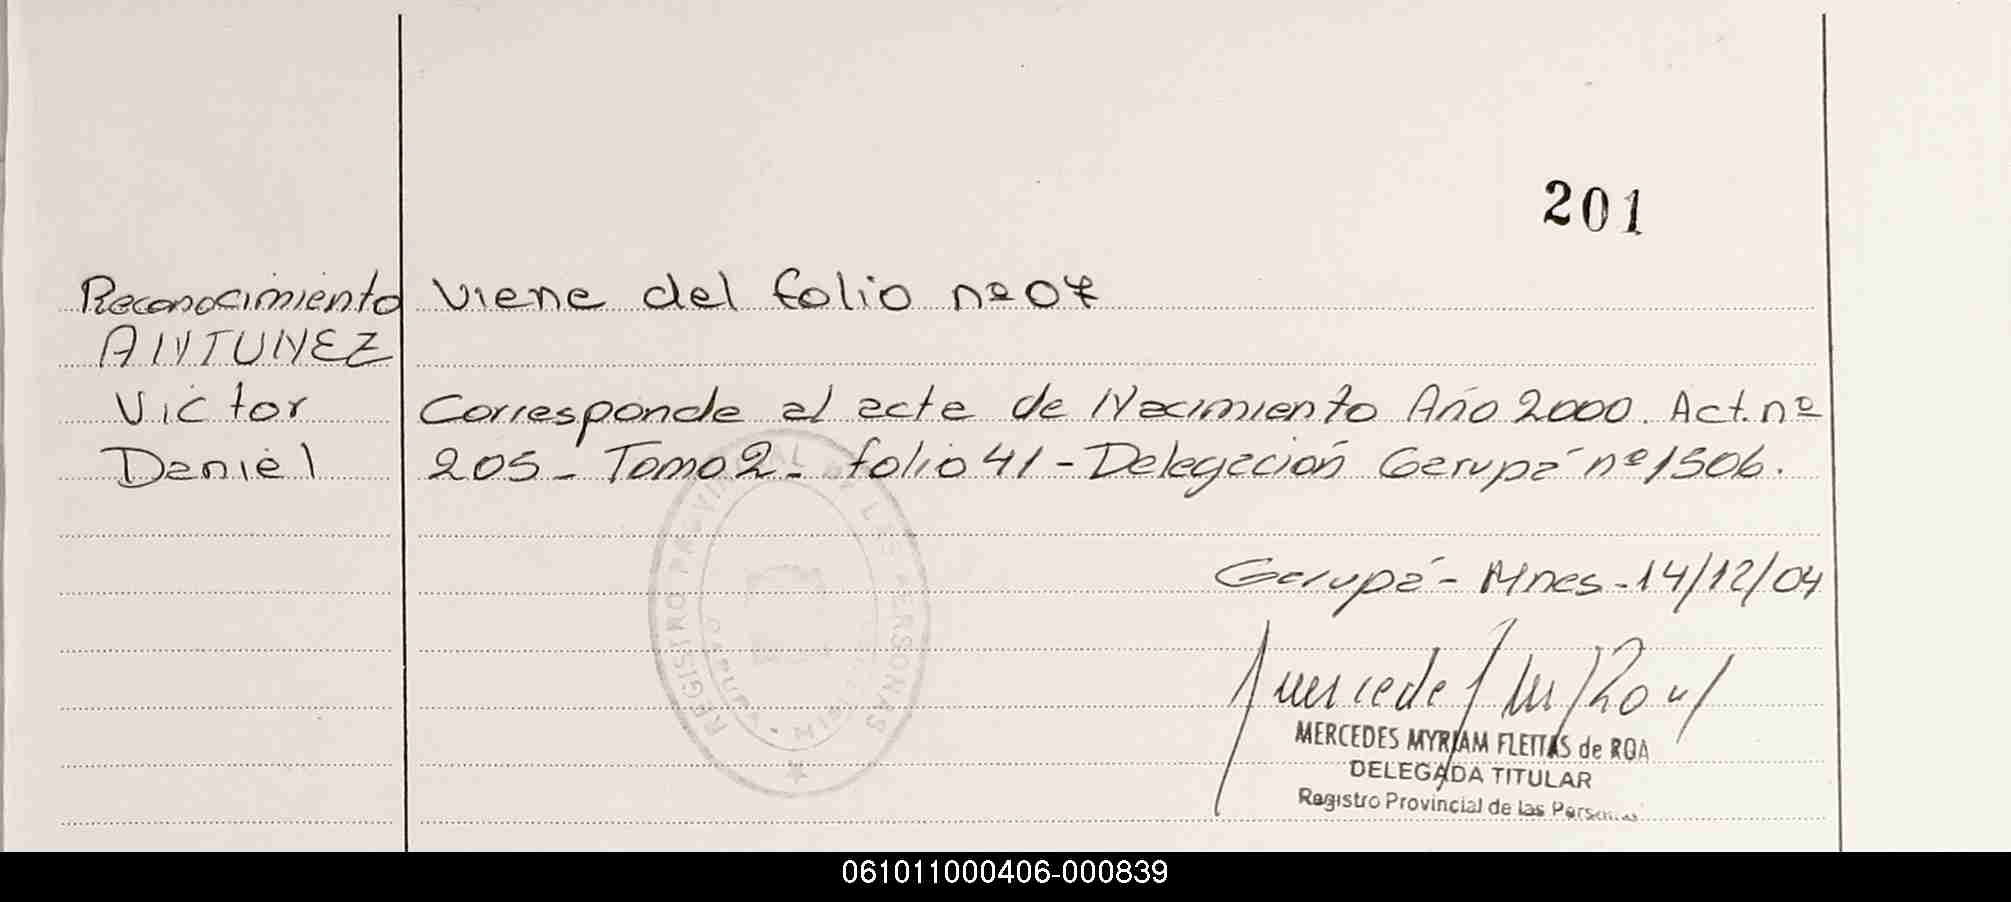 201
Reconocimiento Viene del folio nº 07
ANTUNEZ
Victor Corresponde al acta de Nacimiento Año 2000. Act. nº
Daniel 205 - Tomo 2 - folio 41 - Delegación Garupá nº 1506.
Garupá - Mnes - 14/12/04
REGISTRO PROVINCIAL DE LAS PERSONAS
GARUPA MISIONES
MERCEDES MYRIAM FLEITAS de ROA
DELEGADA TITULAR
Registro Provincial de las Personas
061011000406-000839